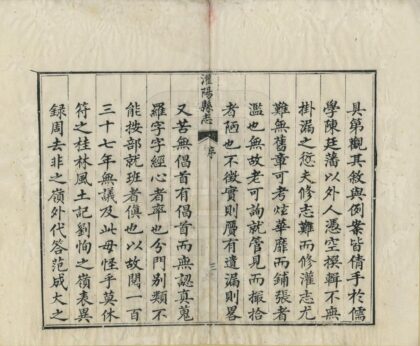 具第觀其敘與例案皆倩手於儒
學陳廷藩以外人憑空撰輯不無
掛漏之愆夫修志難而修灌志尤
難無舊章可考炫華靡而鋪張者
濫也無故老可詢就管見而掇拾
者陋也不徵實則贗有遺漏則畧
灌陽縣志
序
三
又苦無倡首有倡首而無認真蒐
羅字字經心者率也分門別類不
能按部就班者傎也以故閱一百
三十七年無議及此毋怪乎莫休
符之桂林風土記劉恂之嶺表異
錄周去非之嶺外代答范成大之